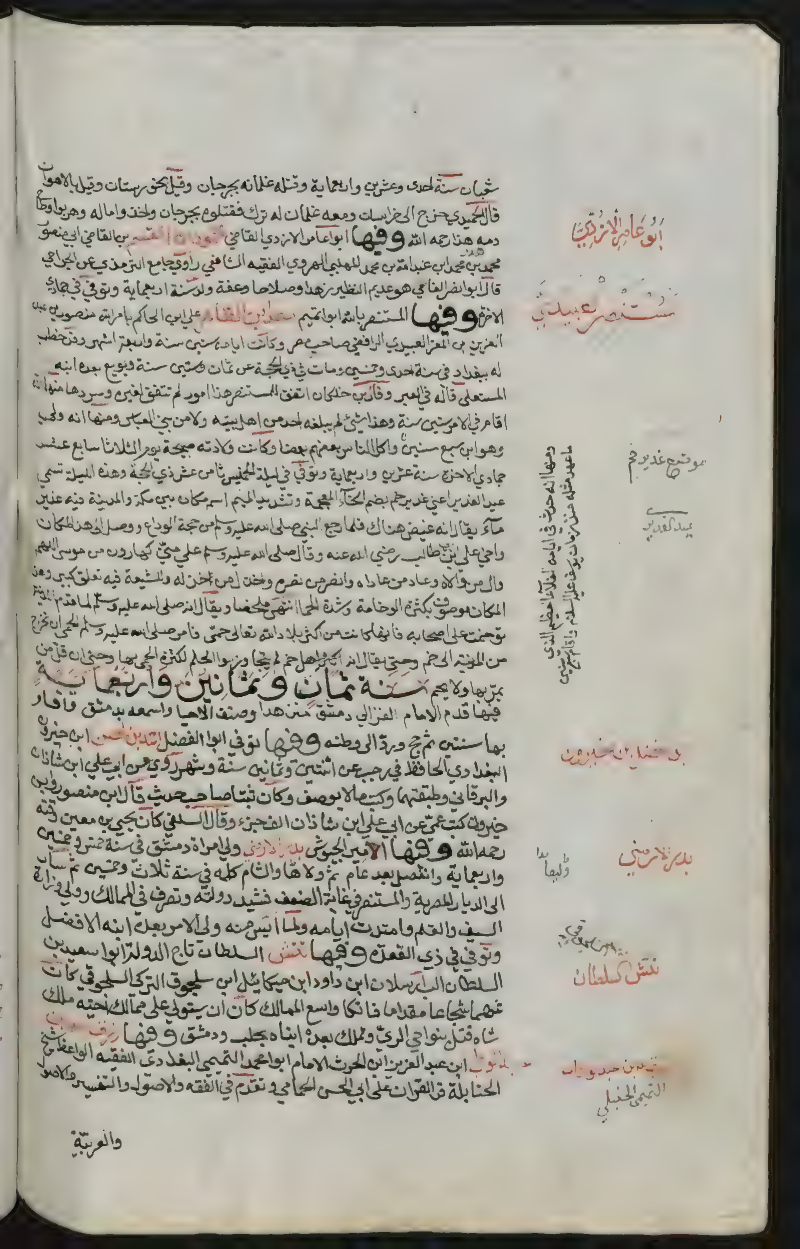 شعبان سنة احدى وعشرين واربعماية وقتله غلمانه بجرجان وقيل بخوزستان وقيل بالاهواز
قال الحميدي خرج الى خراسان ومعه غلمان له ترك فقتلوه بجرجان واخذوا ماله وهربوا وطاح
دمه هدرا رحمه الله وفيها ابو عامر الازدي القاضي محمود بن القسم بن القاضي ابي منصور
محمد بن محمد بن عبد الله بن محمد المهلبي الهروي الفقيه الشافعي راوي جامع الترمذي عن الجراحي
قال ابو النضر الفامي هو عديم النظير زهدا وصلاحا وعفة ولد سنة اربعماية وتوفي في جمادى
الاخرة وفيها المستنصر بالله ابو تميم معد بن الظاهر علي ابن الحاكم بامر الله منصور بن
العزيز بن المعز العبيدي الرافضي صاحب مصر وكانت ايامه ستين سنة واربعة اشهر وقد خطب
له ببغداد في سنة احدى وخمسين ومات في ذي الحجة عن ثمان وستين سنة وبويع بعده ابنه
المستعلي قاله في العبر وقال ابن خلكان اتفق للمستنصر هذا امور لم تتفق لغيره وسردها منها انه
اقام في الامر ستين سنة وهذا شئ لم يبلغه احد من اهل بيته ولا من بني العباس ومنها انه ولي
وهو ابن سبع سنين واكل الناس بعضهم بعضا وكانت ولادته صبيحة يوم الثلاثا سابع عشر
جمادي الاخرة سنة عشرين واربعماية وتوفي في ليلة الخميس ثامن عشر ذي الحجة وهذه الليلة تسمى
عيد الغدير اعني غدير خم بضم الخاء المعجمة وتشديد الميم اسم مكان بين مكة والمدينة فيه غدير
ماء يقال انه غيض هناك فلما رجع النبي صلى الله عليه وسلم من حجة الوداع ووصل الى هذا المكان
واخى علي ابن ابي طالب رضي الله عنه وقال صلى الله عليه وسلم علي مني كهارون من موسى اللهم
وال من والاه وعاد من عاداه وانصر من نصره واخذل من خذله وللشيعة فيه تعلق كبير وهذا
المكان موصوف بكثرة الوخامة وشدة الحر انتهى ملخصا ويقال انه صلى الله عليه وسلم لما قدم المدينة
توخمت على اصحابه فانها كانت من اكثر بلاد الله تعالى حمى فامر صلى الله عليه وسلم الحمى ان تخرج
من المدينة الى خم وحتى يقال ان اكثر اهل خم لم
يمر بها ولا يحم سنة ثمان وثمانين واربعماية
فيها قدم الامام الغزالي دمشق متزهدا وصنف الاحيا واسمعه بدمشق واقام
بها سنتين ثم حج ورد الى وطنه وفيها توفي ابو الفضل احمد بن الحسن ابن خيرون
البغدادي الحافظ في رجب عن اثنتين وثمانين سنة وشهر روى عن ابي علي ابن شاذان
والبرقاني وطبقتهما وكتب ما لا يوصف وكان ثبتا صاحب حديث قال ابو منصور ابن
خيرون كتب عمي عن ابي علي ابن شاذان الف جزء وقال السلفي كان يحيى بن معين وقته
رحمه الله وفيها الامير الجيوش بدر الارمني ولي امرة دمشق في سنة خمس وخمسين
واربعماية وانفصل بعد عام ثم ولاها والشام كله في سنة ثلاث وخمسين ثم سار
الى الديار المصرية والمستنصر في غاية الضعف فشيد دولته وتصرف في الممالك وولي وزارة
السيف والقلم وامتدت ايامه ولما ايس منه ولي الامر بعده ابنه الافضل
وتوفي في ذي القعدة وفيها تتش السلطان تاج الدولة ابو سعيد بن
السلطان الب ارسلان ابن داود ابن ميكائيل ابن سلجوق التركي السلجوقي كان
شهما شجاعا مقداما فاتكا واسع الممالك كان ان يستولي على ممالك اخيه ملك
شاه قتل بنواحي الري وتملك بعده ابناه بحلب ودمشق وفيها رزق الله بن
عبد الوهاب ابن عبد العزيز ابن الحرث الامام ابو محمد التميمي البغدادي الفقيه الواعظ شيخ
الحنابلة قرا القران على ابي الحسن الحمامي وتقدم في الفقه والاصول والتفسير
والعربية
ابو عامر الازدي
مستنصر عبيدي
موضع غدير خم
عيد الغدير
بدر الارمني
تتش السلطان
التميمي الحنبلي